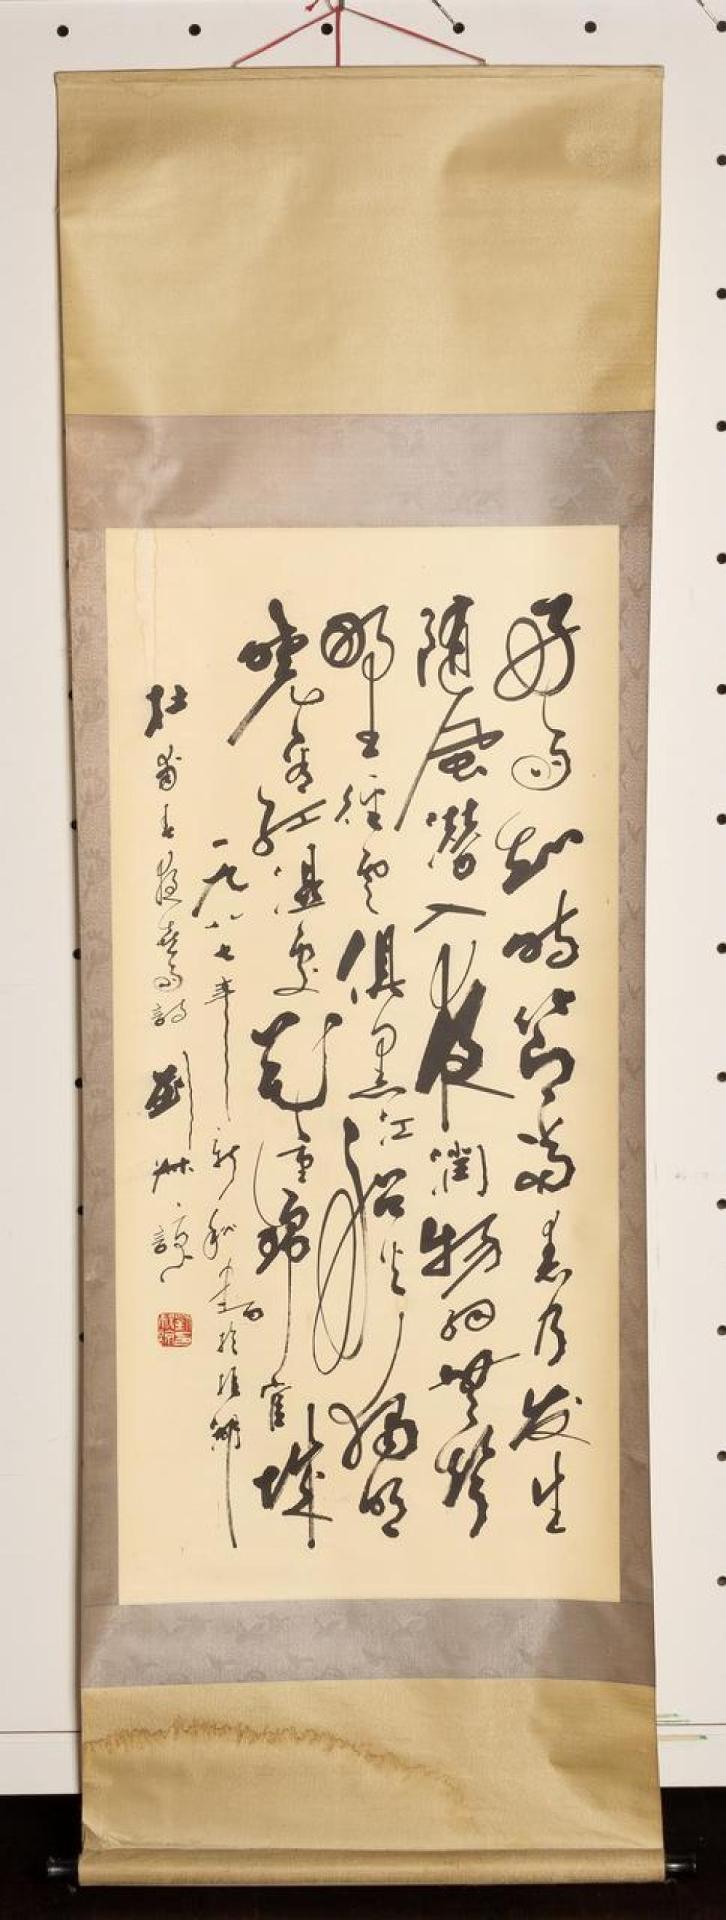 好雨知时節當春乃发生
随風潜入夜潤物細無聲
野径雲俱黑江船火獨明
晓看红濕處花重錦官城
一九八七年新秋書於
杜甫春夜喜雨詩 刘